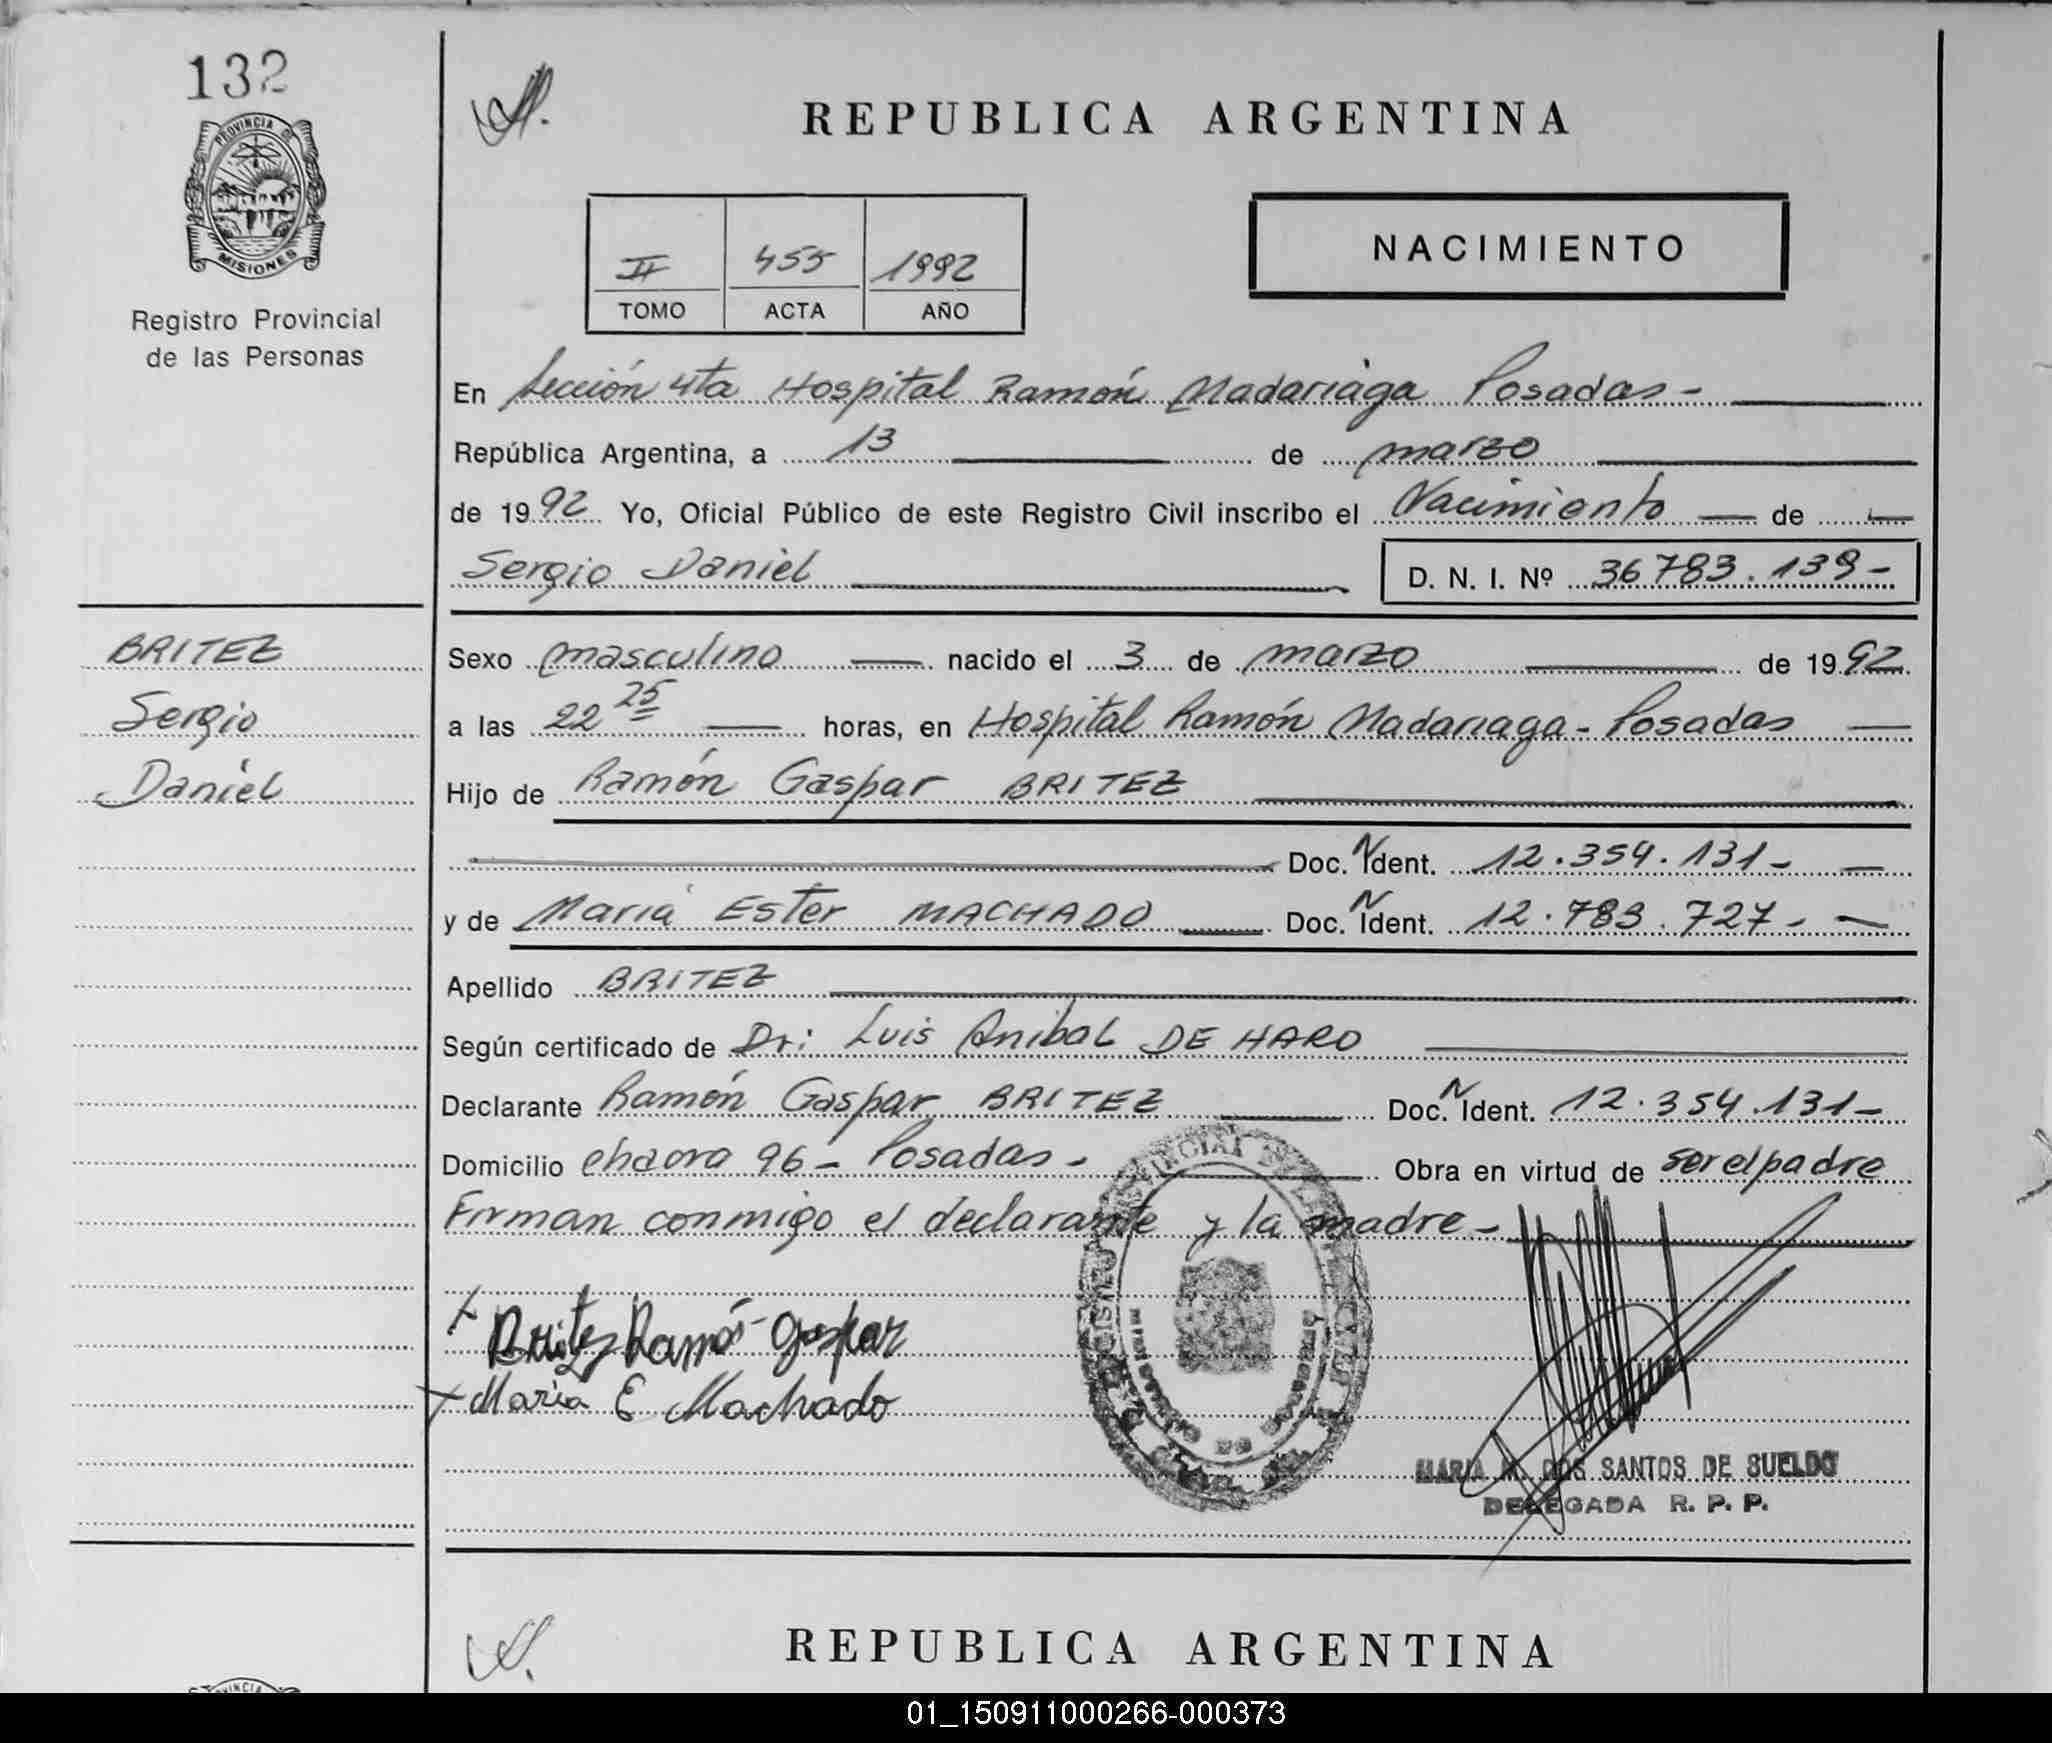 132
PROVINCIA DE
MISIONES
Registro Provincial
de las Personas
REPUBLICA ARGENTINA
II 455 1992
TOMO ACTA AÑO
NACIMIENTO
En Sección 4ta Hospital Ramón Madariaga Posadas -
República Argentina, a 13 de marzo
de 1992 Yo, Oficial Público de este Registro Civil inscribo el Nacimiento de
Sergio Daniel D. N. I. Nº 36783.139-
BRITEZ
Sergio
Daniel
Sexo masculino nacido el 3 de marzo de 1992
a las 22 25 horas, en Hospital Ramón Madariaga - Posadas
Hijo de Ramón Gaspar BRITEZ
Doc. N Ident. 12.354.131-
y de María Ester MACHADO Doc. N Ident. 12.783.727-
Apellido BRITEZ
Según certificado de Dr: Luis Anibal DE HARO
Declarante Ramón Gaspar BRITEZ Doc. N Ident. 12.354.131-
Domicilio chacra 96 - Posadas - Obra en virtud de ser el padre
Firman conmigo el declarante y la madre -
Britez Ramón Gaspar
Maria E Machado
MARIA DOS SANTOS DE SUELDO
DELEGADA R. P. P.
REPUBLICA ARGENTINA
01_150911000266-000373